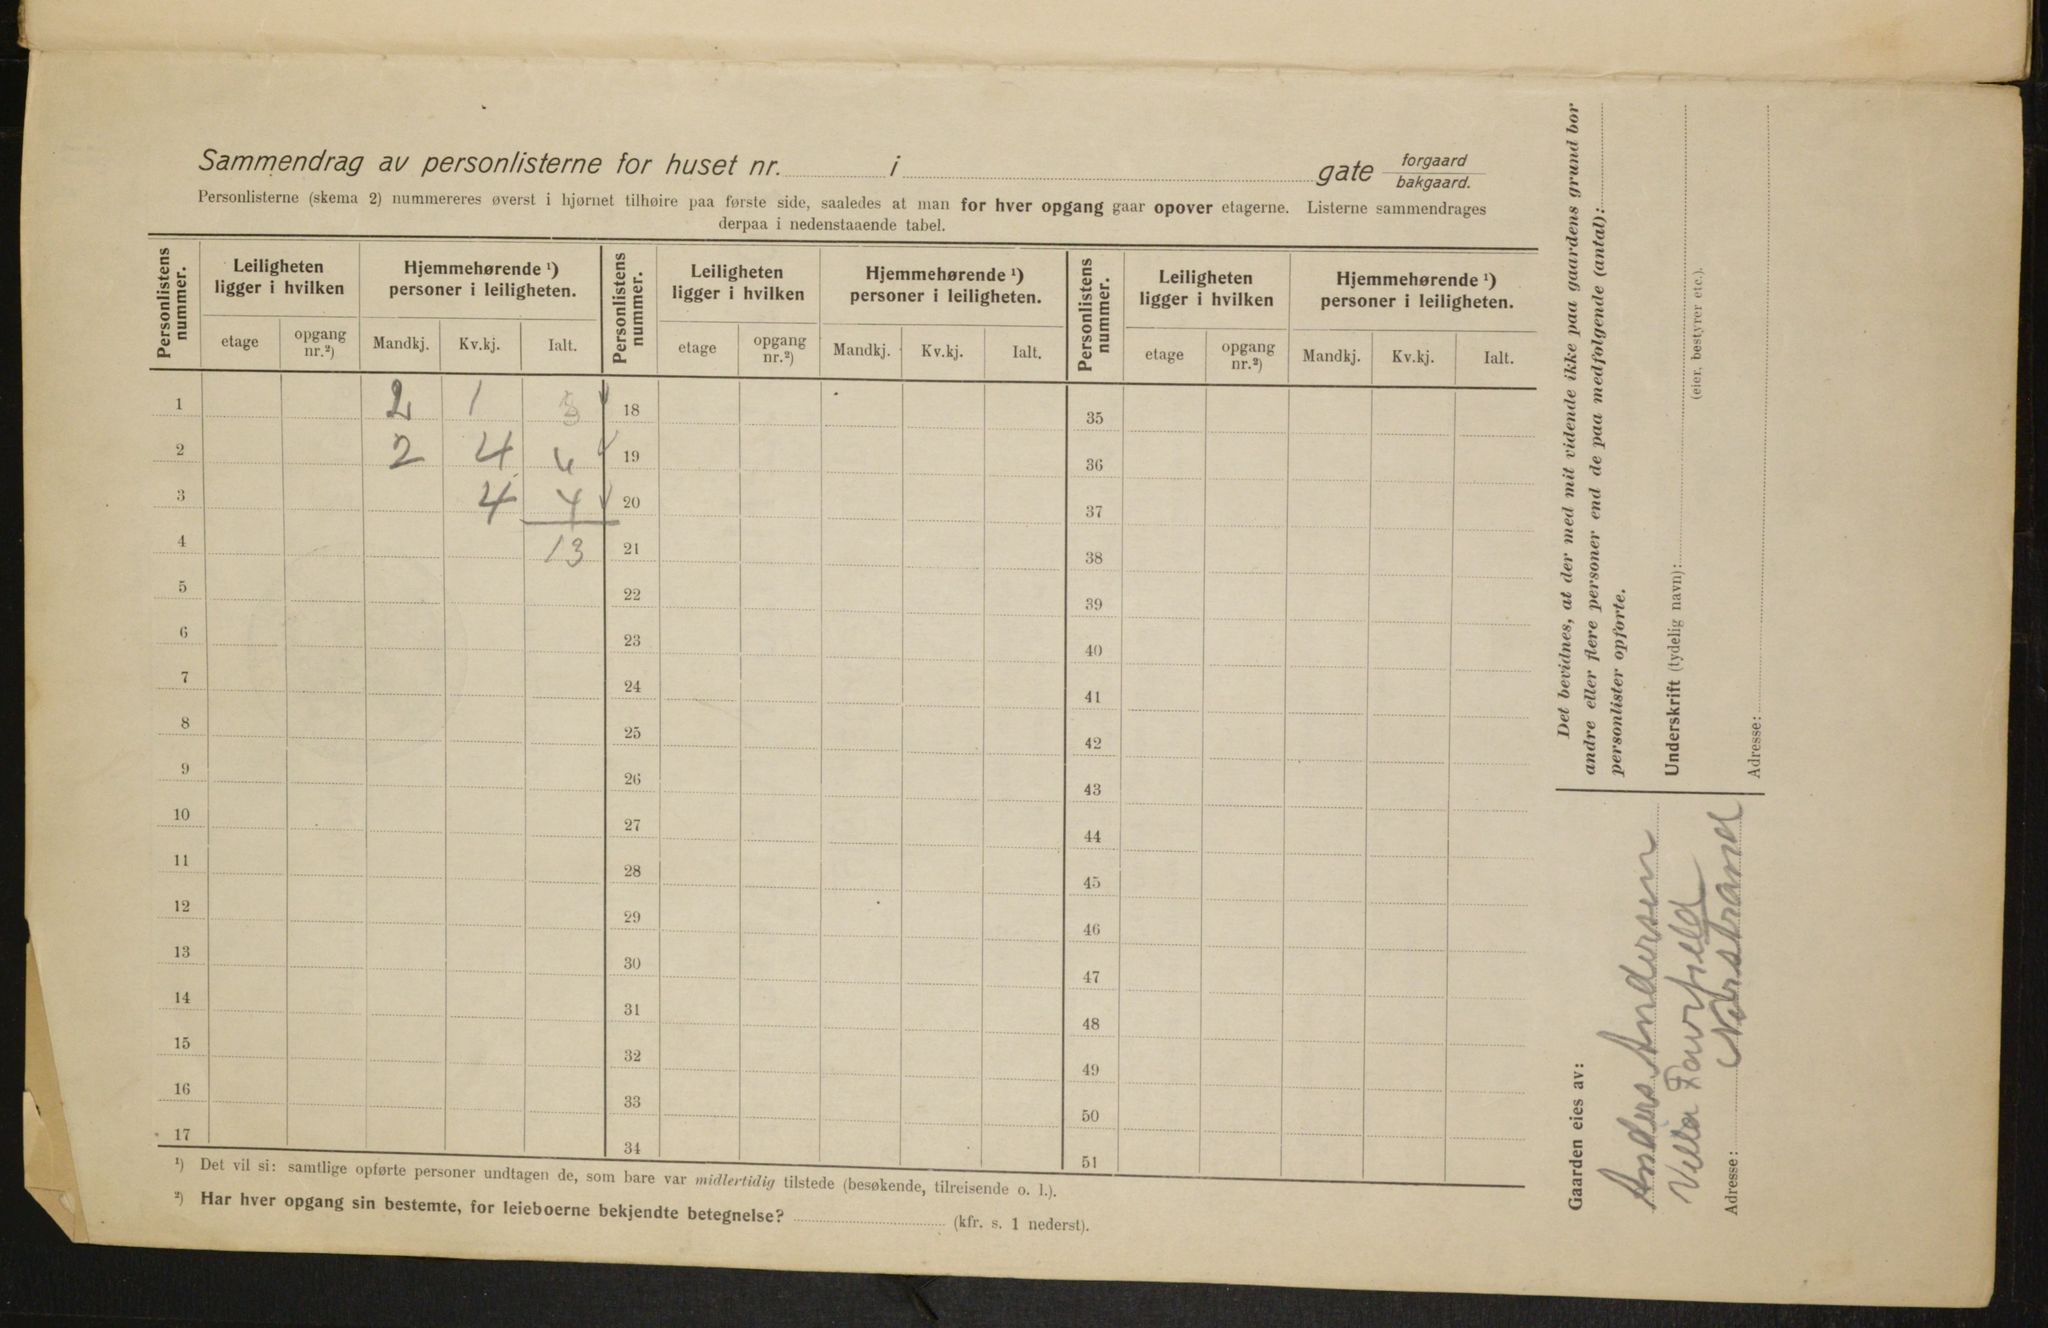 Sammendrag av personlisterne for huset nr. i gate forgaard
bakgaard.
Personlisterne (skema 2) nummereres øverst i hjørnet tilhøire paa første side, saaledes at man for hver opgang gaar opover etagerne. Listerne sammendrages
derpaa i nedenstaaende tabel.
Personlistens nummer. Leiligheten ligger i hvilken Hjemmehørende ¹) personer i leiligheten. Personlistens nummer. Leiligheten ligger i hvilken Hjemmehørende ¹) personer i leiligheten. Personlistens nummer. Leiligheten ligger i hvilken Hjemmehørende ¹) personer i leiligheten.
etage opgang nr.²) Mandkj. Kv.kj. Ialt. etage opgang nr.²) Mandkj. Kv.kj. Ialt. etage opgang nr.²) Mandkj. Kv.kj. Ialt.
1 2 1 3 18 35
2 2 4 6 19 36
3 4 4 20 37
4 13 21 38
5 22 39
6 23 40
7 24 41
8 25 42
9 26 43
10 27 44
11 28 45
12 29 46
13 30 47
14 31 48
15 32 49
16 33 50
17 34 51
¹) Det vil si: samtlige opførte personer undtagen de, som bare var midlertidig tilstede (besøkende, tilreisende o. l.).
²) Har hver opgang sin bestemte, for leieboerne bekjendte betegnelse? (kfr. s. 1 nederst).
Det bevidnes, at der med mit vidende ikke paa gaardens grund bor
andre eller flere personer end de paa medfølgende (antal):
personlister opførte.
Underskrift (tydelig navn):
(eier, bestyrer etc.).
Adresse:
Gaarden eies av:
Anders Andersen
Villa
Adresse: Nordstrand